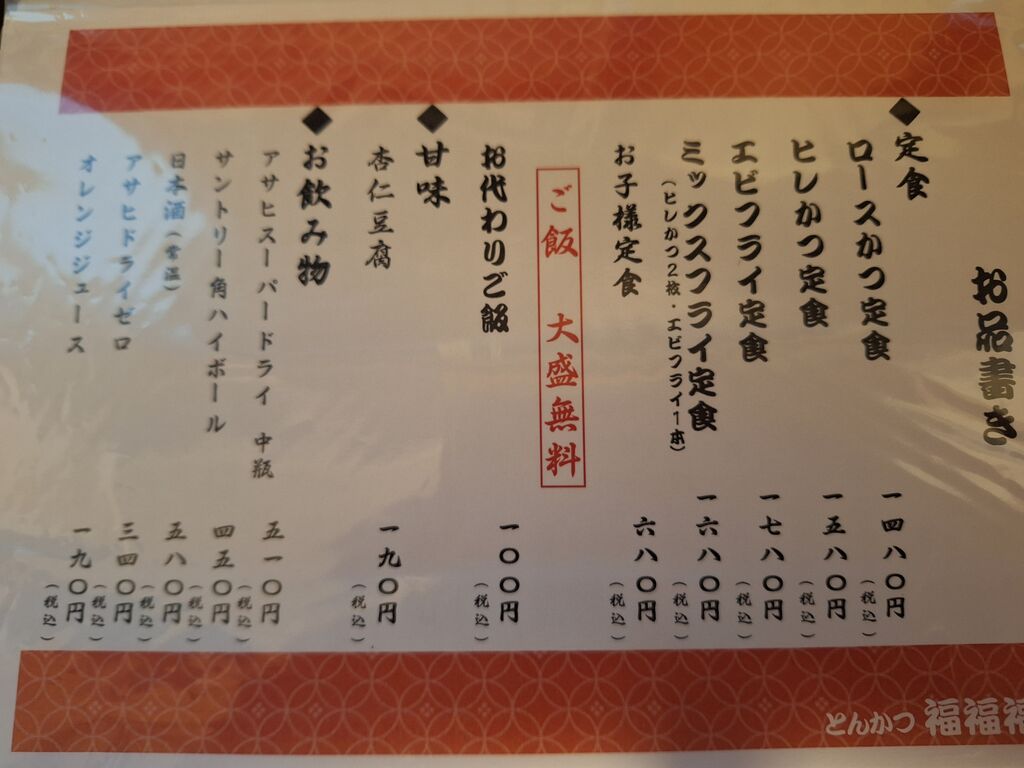 お品書き
◆定食
ロースかつ定食 一四八〇円(税込)
ヒレかつ定食 一五八〇円(税込)
エビフライ定食 一七八〇円(税込)
ミックスフライ定食 一六八〇円(税込)
(ヒレかつ2枚・エビフライ1本)
お子様定食 六八〇円(税込)
ご飯 大盛無料
お代わりご飯 一〇〇円(税込)
◆甘味
杏仁豆腐 一九〇円(税込)
◆お飲み物
アサヒスーパードライ 中瓶 五一〇円(税込)
サントリー角ハイボール 四五〇円(税込)
日本酒(常温) 五八〇円(税込)
アサヒドライゼロ 三四〇円(税込)
オレンジジュース 一九〇円(税込)
とんかつ 福福福